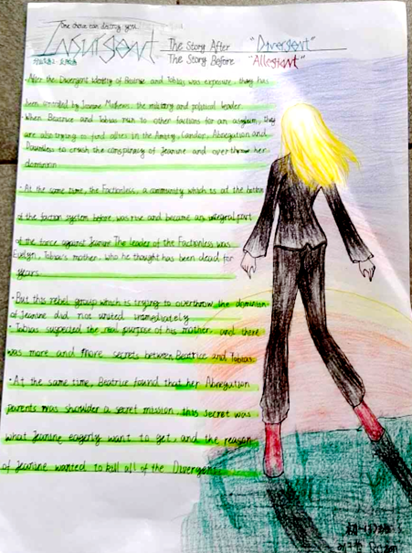 One choice can destroy you
INSURGENT
The Story After "Divergent"
The Story Before "Allegiant"
After the Divergent identity of Beatrice and Tobias was exposure, thing has
been controlled by Jeanine Mathews, the military and political leader.
When Beatrice and Tobias run to other factions for an asylum, they
are also trying to find allies in the Amity, Candor, Abnegation and
Dauntless to crush the conspiracy of Jeanine and overthrow her
dominion
· At the same time, the Factionless, a community which is at the bottom
of the faction system before was rise and became an integral part
of the force against Jeanine. The leader of the Factionless was
Evelyn, Tobias's mother, who he thought has been dead for
years.
· But this rebel group which is trying to overthrow the dominion
of Jeanine did not united immediately
· Tobias suspected the real purpose of his mother, and there
was more and more secrets between Beatrice and Tobias.
· At the same time, Beatrice found that her Abnegation
parents was shoulder a secret mission, this secret was
what Jeanine eagerly want to get, and the reason
of Jeanine wanted to kill all of the Divergent.